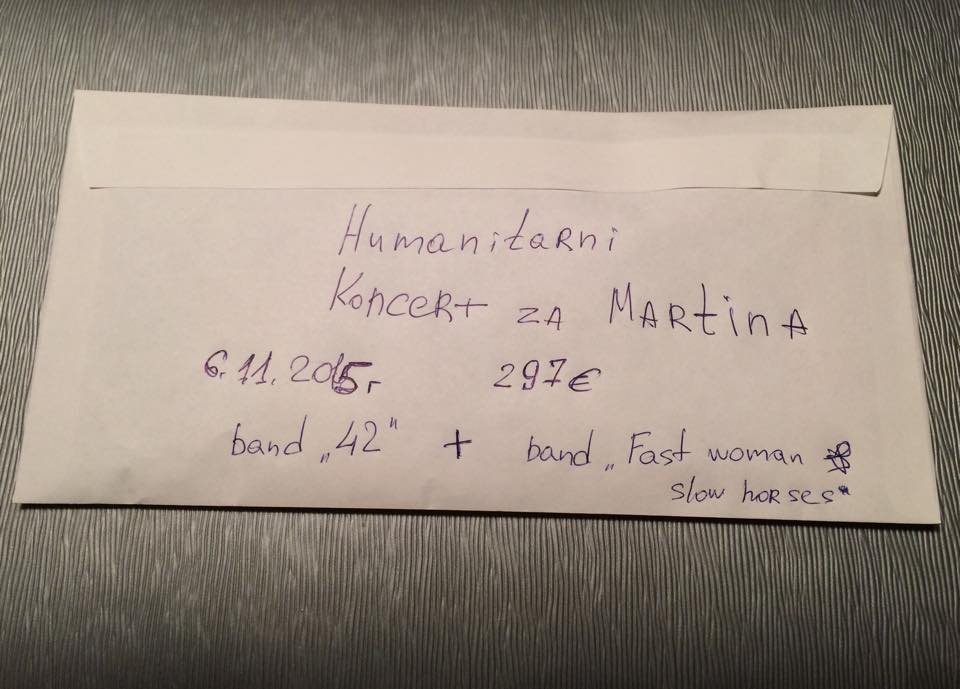 Humanitarni
Koncert za Martina
6.11.2015 r 297€
band „42" + band „Fast woman
slow horses"